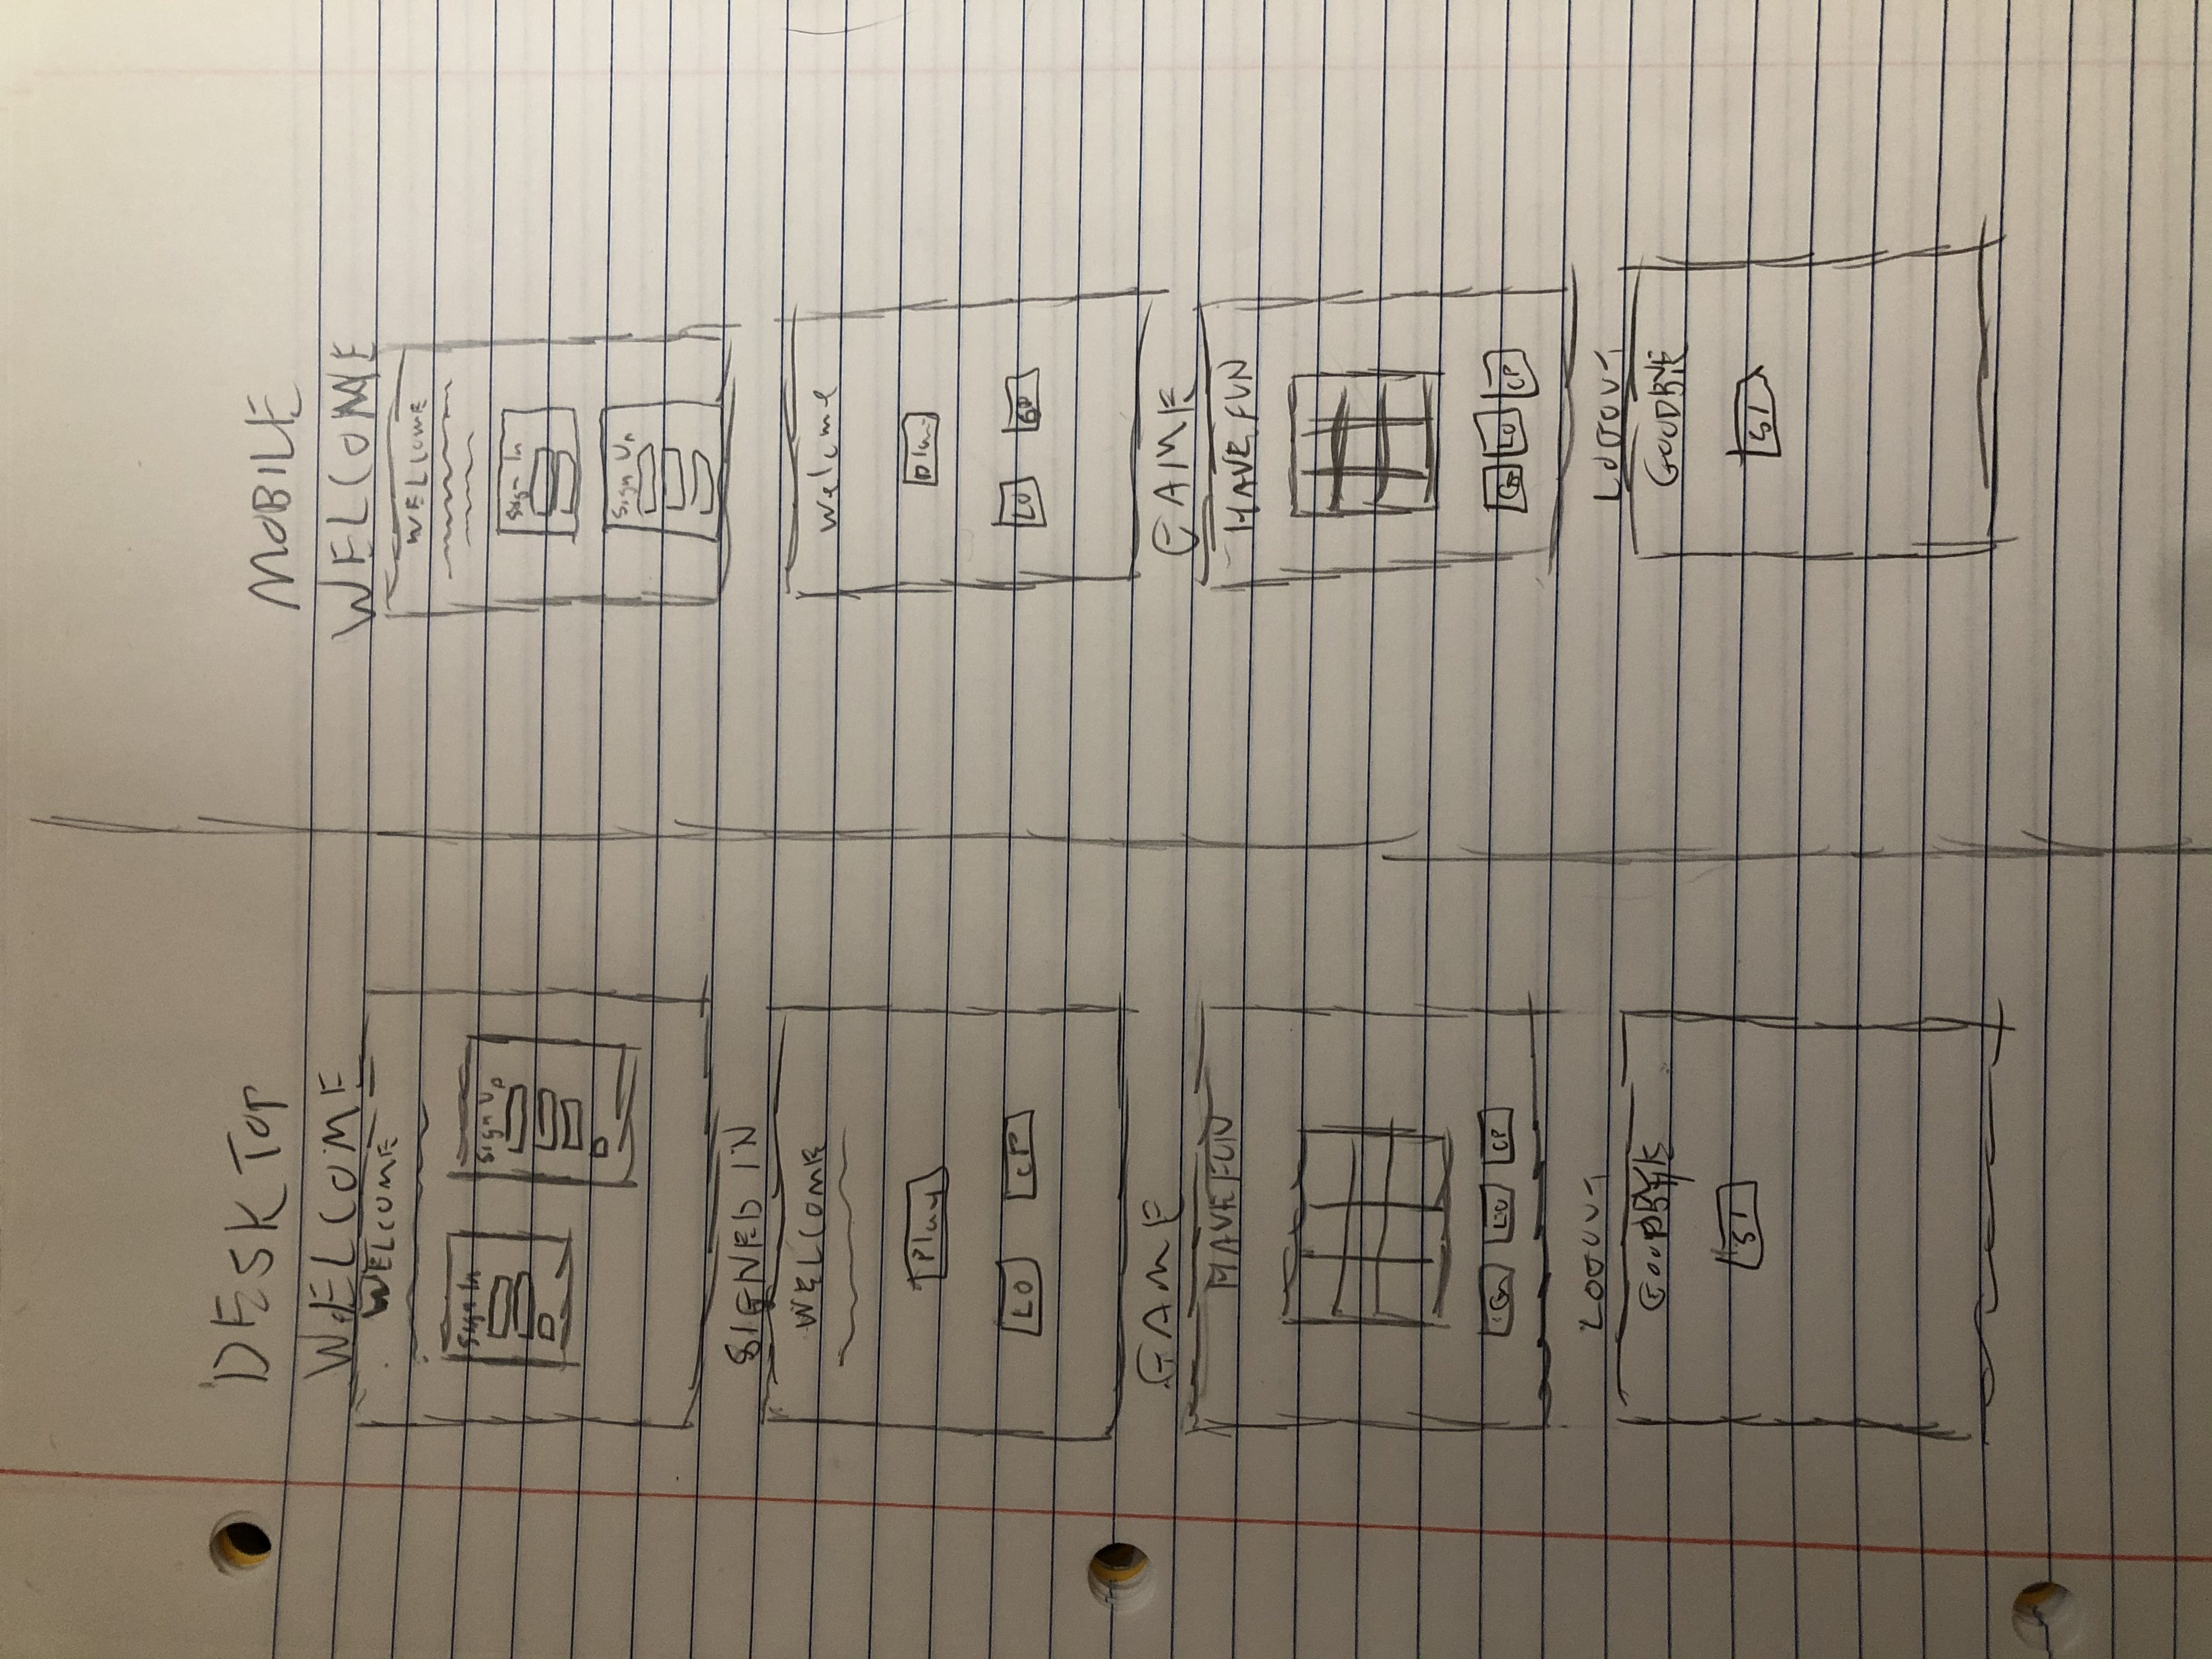 DESKTOP
WELCOME
WELCOME
Sign In
Sign Up
SIGNED IN
WELCOME
Play
LO
CP
GAME
HAVE FUN
LO
CP
LOGOUT
GOODBYE
SI
MOBILE
WELCOME
WELCOME
Sign In
Sign Up
Welcme
LO
GAME
HAVE FUN
G
LO
CP
LOGOUT
GOODBYE
SI